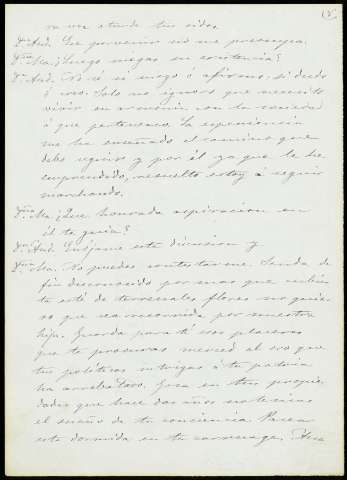 na voz atende tus oidos.
Dn And. Ese porvenir no me preocupa.
Dña Ma. ¿Luego niegas su existencia?
Dn And. No sé si niego ó afirmo, si dudo
ó creo. Solo no ignoro que necesito
vivir en armonia con la sociedad
á que pertenezco. La esperiencia
me ha enseñado el camino que
debo seguir y por él ya que le he
emprendido, resuelto estoy á seguir
marchando.
Dña Ma. ¿Que honrada aspiracion en
él te guia?
Dn And. Enójame esta discusion y
Dña Ma. No puedes contestarme. Senda de
fin desconocido por mas que cubier
ta esté de terrenales flores no quie-
ro que sea recorrida por nuestra
hija. Guarda para tí esos placeres
que te procuras merced al oro que
tus politicas intrigas á la patria
ha arrebatado. Goza en tus propie-
dades que hace dos años
el sueño de tu conciencia. Pasea
esta dormida en tu carruage.